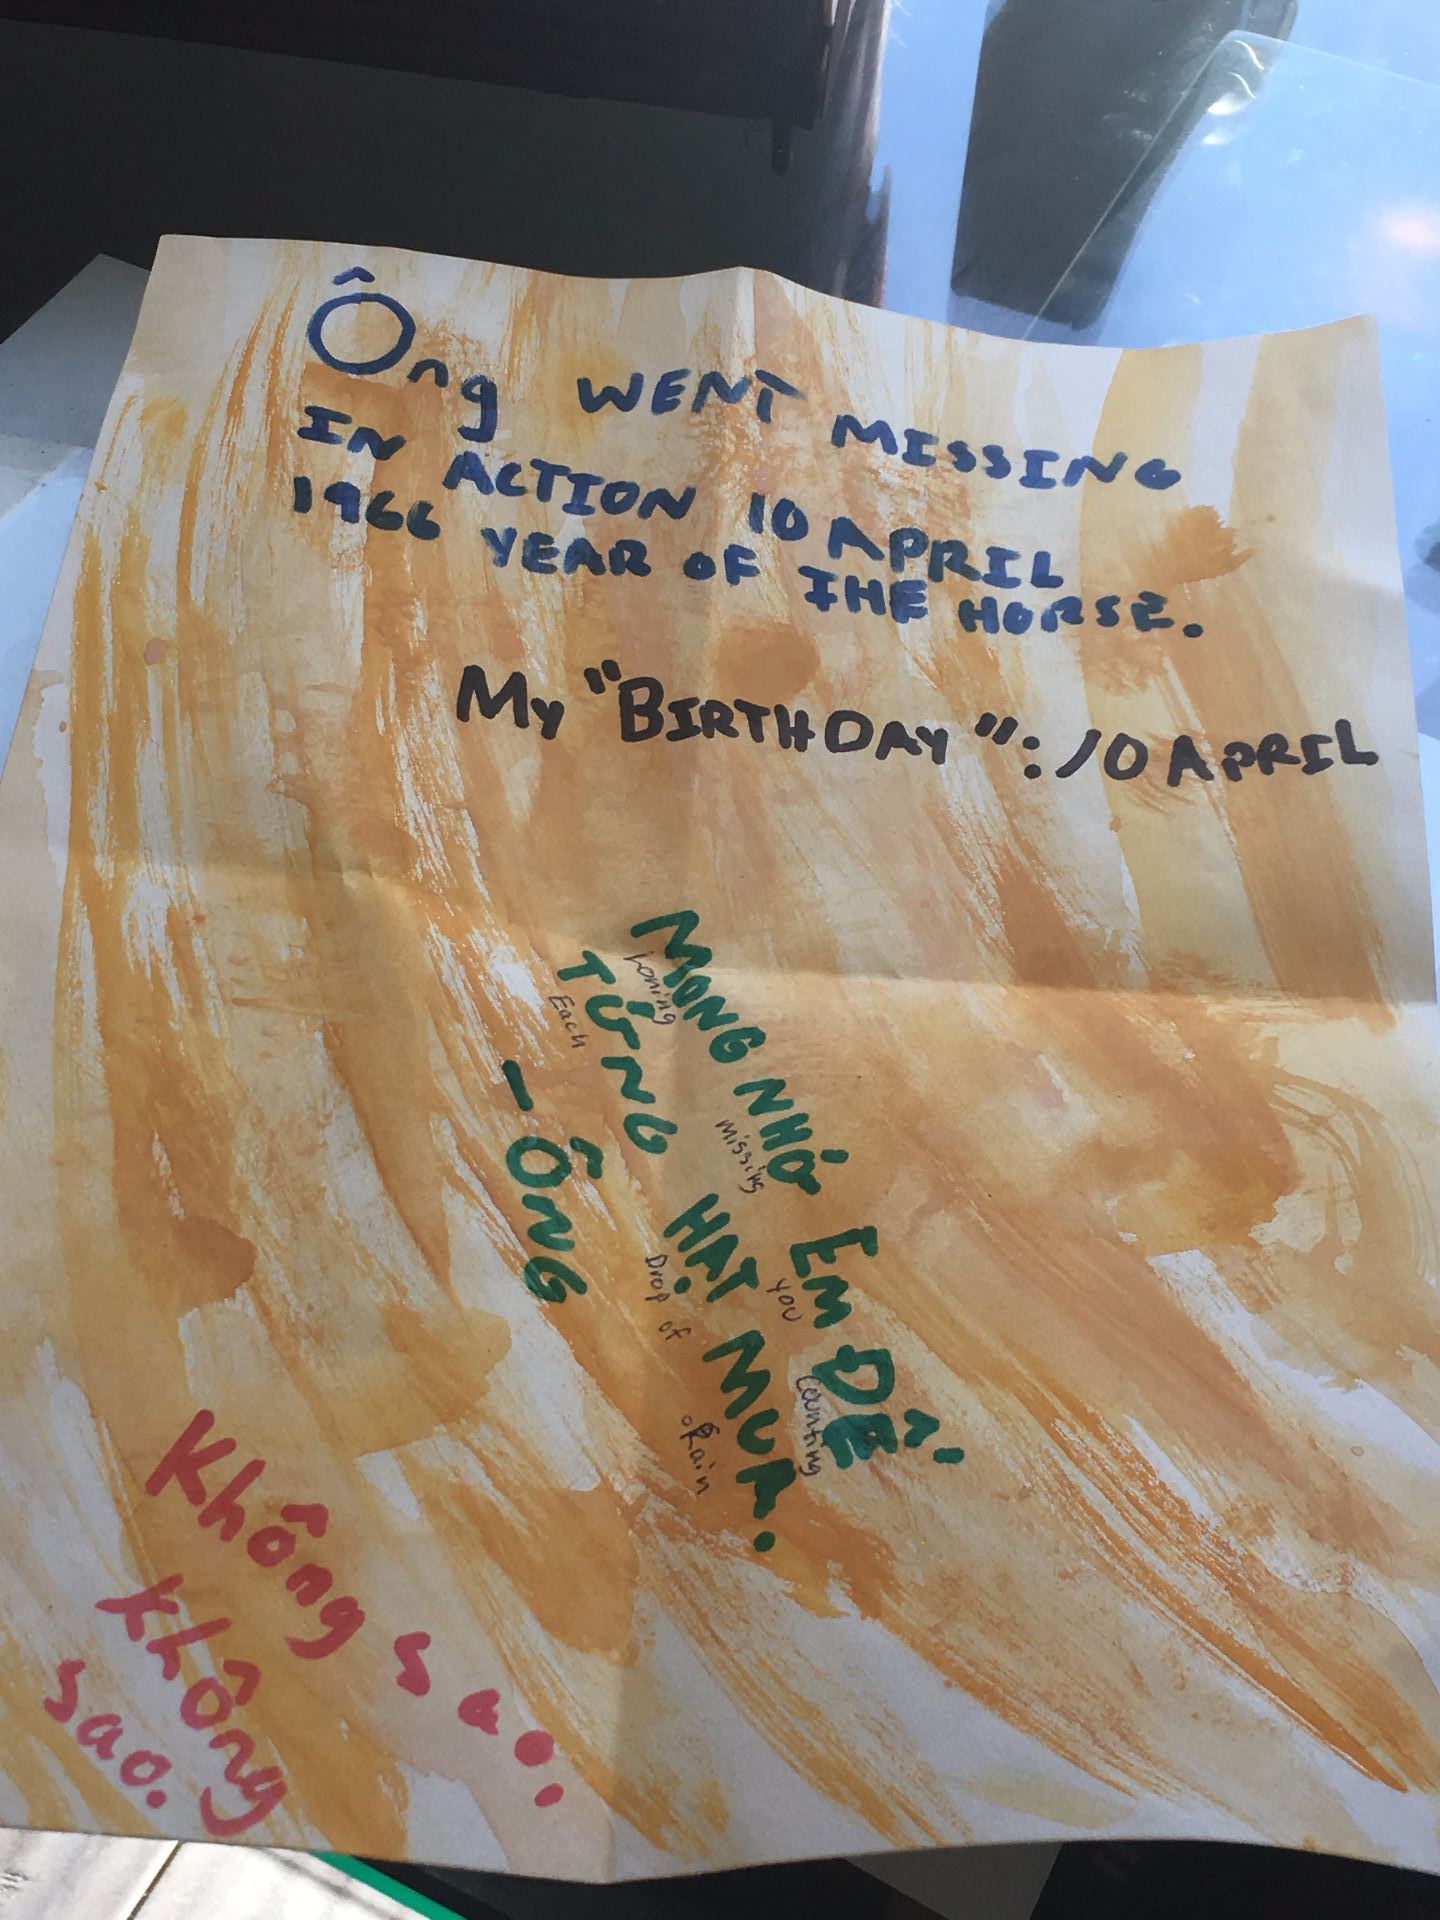 Ông WENT MISSING
IN ACTION 10 APRIL
1966 YEAR OF THE HORSE.
My "BIRTHDAY": 10 APRIL
MONG NHỚ EM ĐẾ
Loning missing you counting
TỪNG HẠT MƯA.
Each Drop of Rain
- ÔNG
Không sao.
Không
sao.